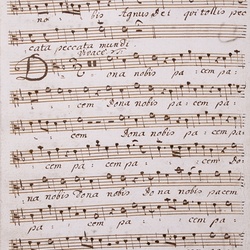 no bis Agnus Dei qui tollis pec
cata peccata mundi.
Vivace
Dona nobis pacem pa:
cem dona nobis pa:
cem dona nobis pa:
cem pa: cem pa:
cem pa: cem pa:
na nobis Dona nobis dona nobis pacem
pa: cem pa: